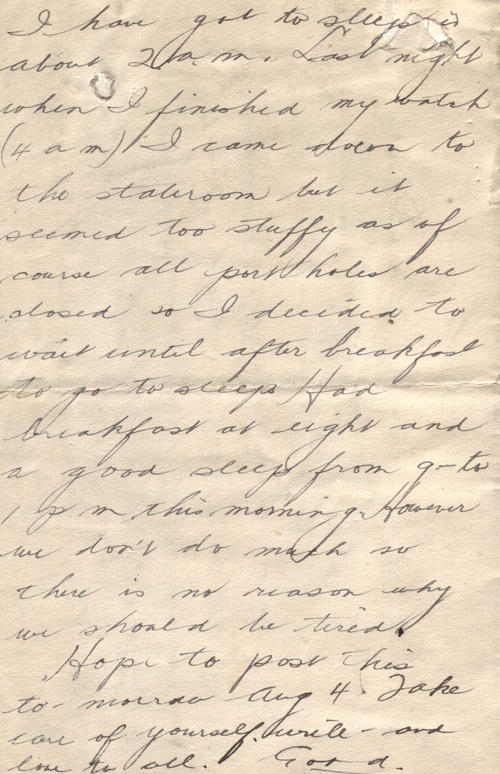 I have got to sleep is
about 2 a.m. Last night
when I finished my watch
(4 a m) I came down to
the stateroom but it
seemed too stuffy as of
course all port holes are
closed so I decided to
wait until after breakfast
to go to sleep Had
breakfast at eight and
a good sleep from 9- to
1 p m this morning. However
we don't do much so
there is no reason why
we should be tired.
Hope to post this
to-morrow Aug 4. Take
care of yourself. write - and
love to all.